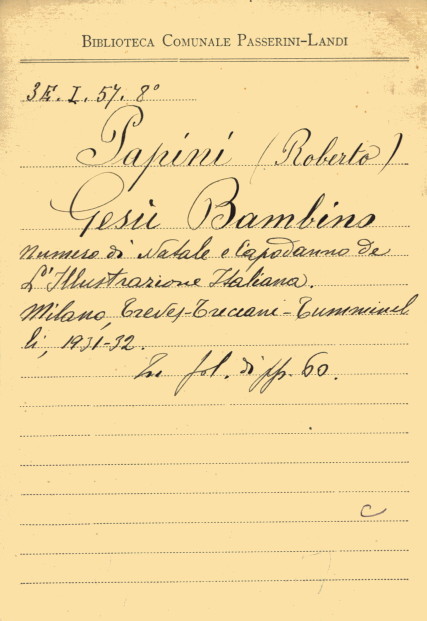 BIBLIOTECA COMUNALE PASSERINI-LANDI
3Æ. I. 57. 8°
Papini (Roberto)
Gesù Bambino
Numero di Natale e Capodanno de
L'Illustrazione Italiana.
Milano, Treves-Treccani-Tumminel
li, 1931-32.
In fol. di pp. 60.
C